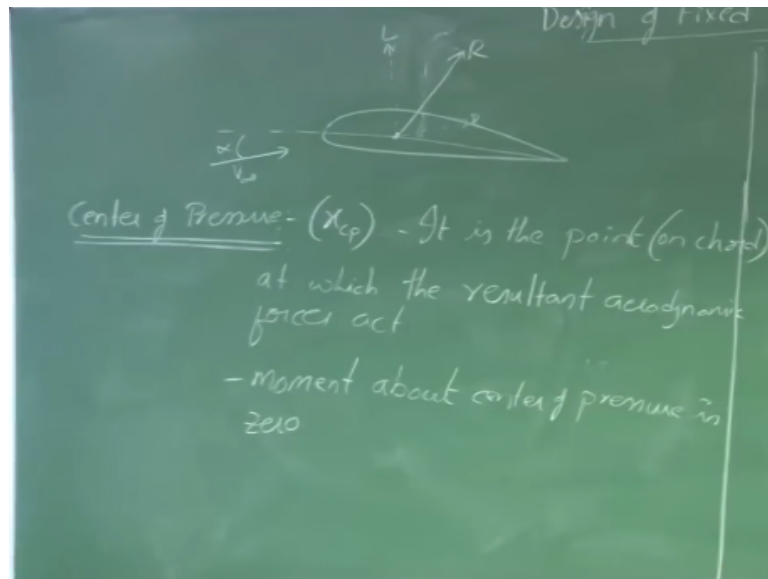 Design of Fixed
L
R
α
V∞
Center of Pressure - (x_cp) - It is the point (on chord)
at which the resultant aerodynamic
forces act
- moment about center of pressure is
zero